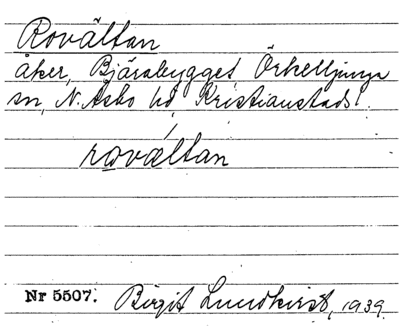 Rovältan
åker, Bjärabygget Örkelljunga
sn, N. Åsbo hd, Kristianstads l.
rováltan
Nr 5507. Birgit Lundkvist, 1939.